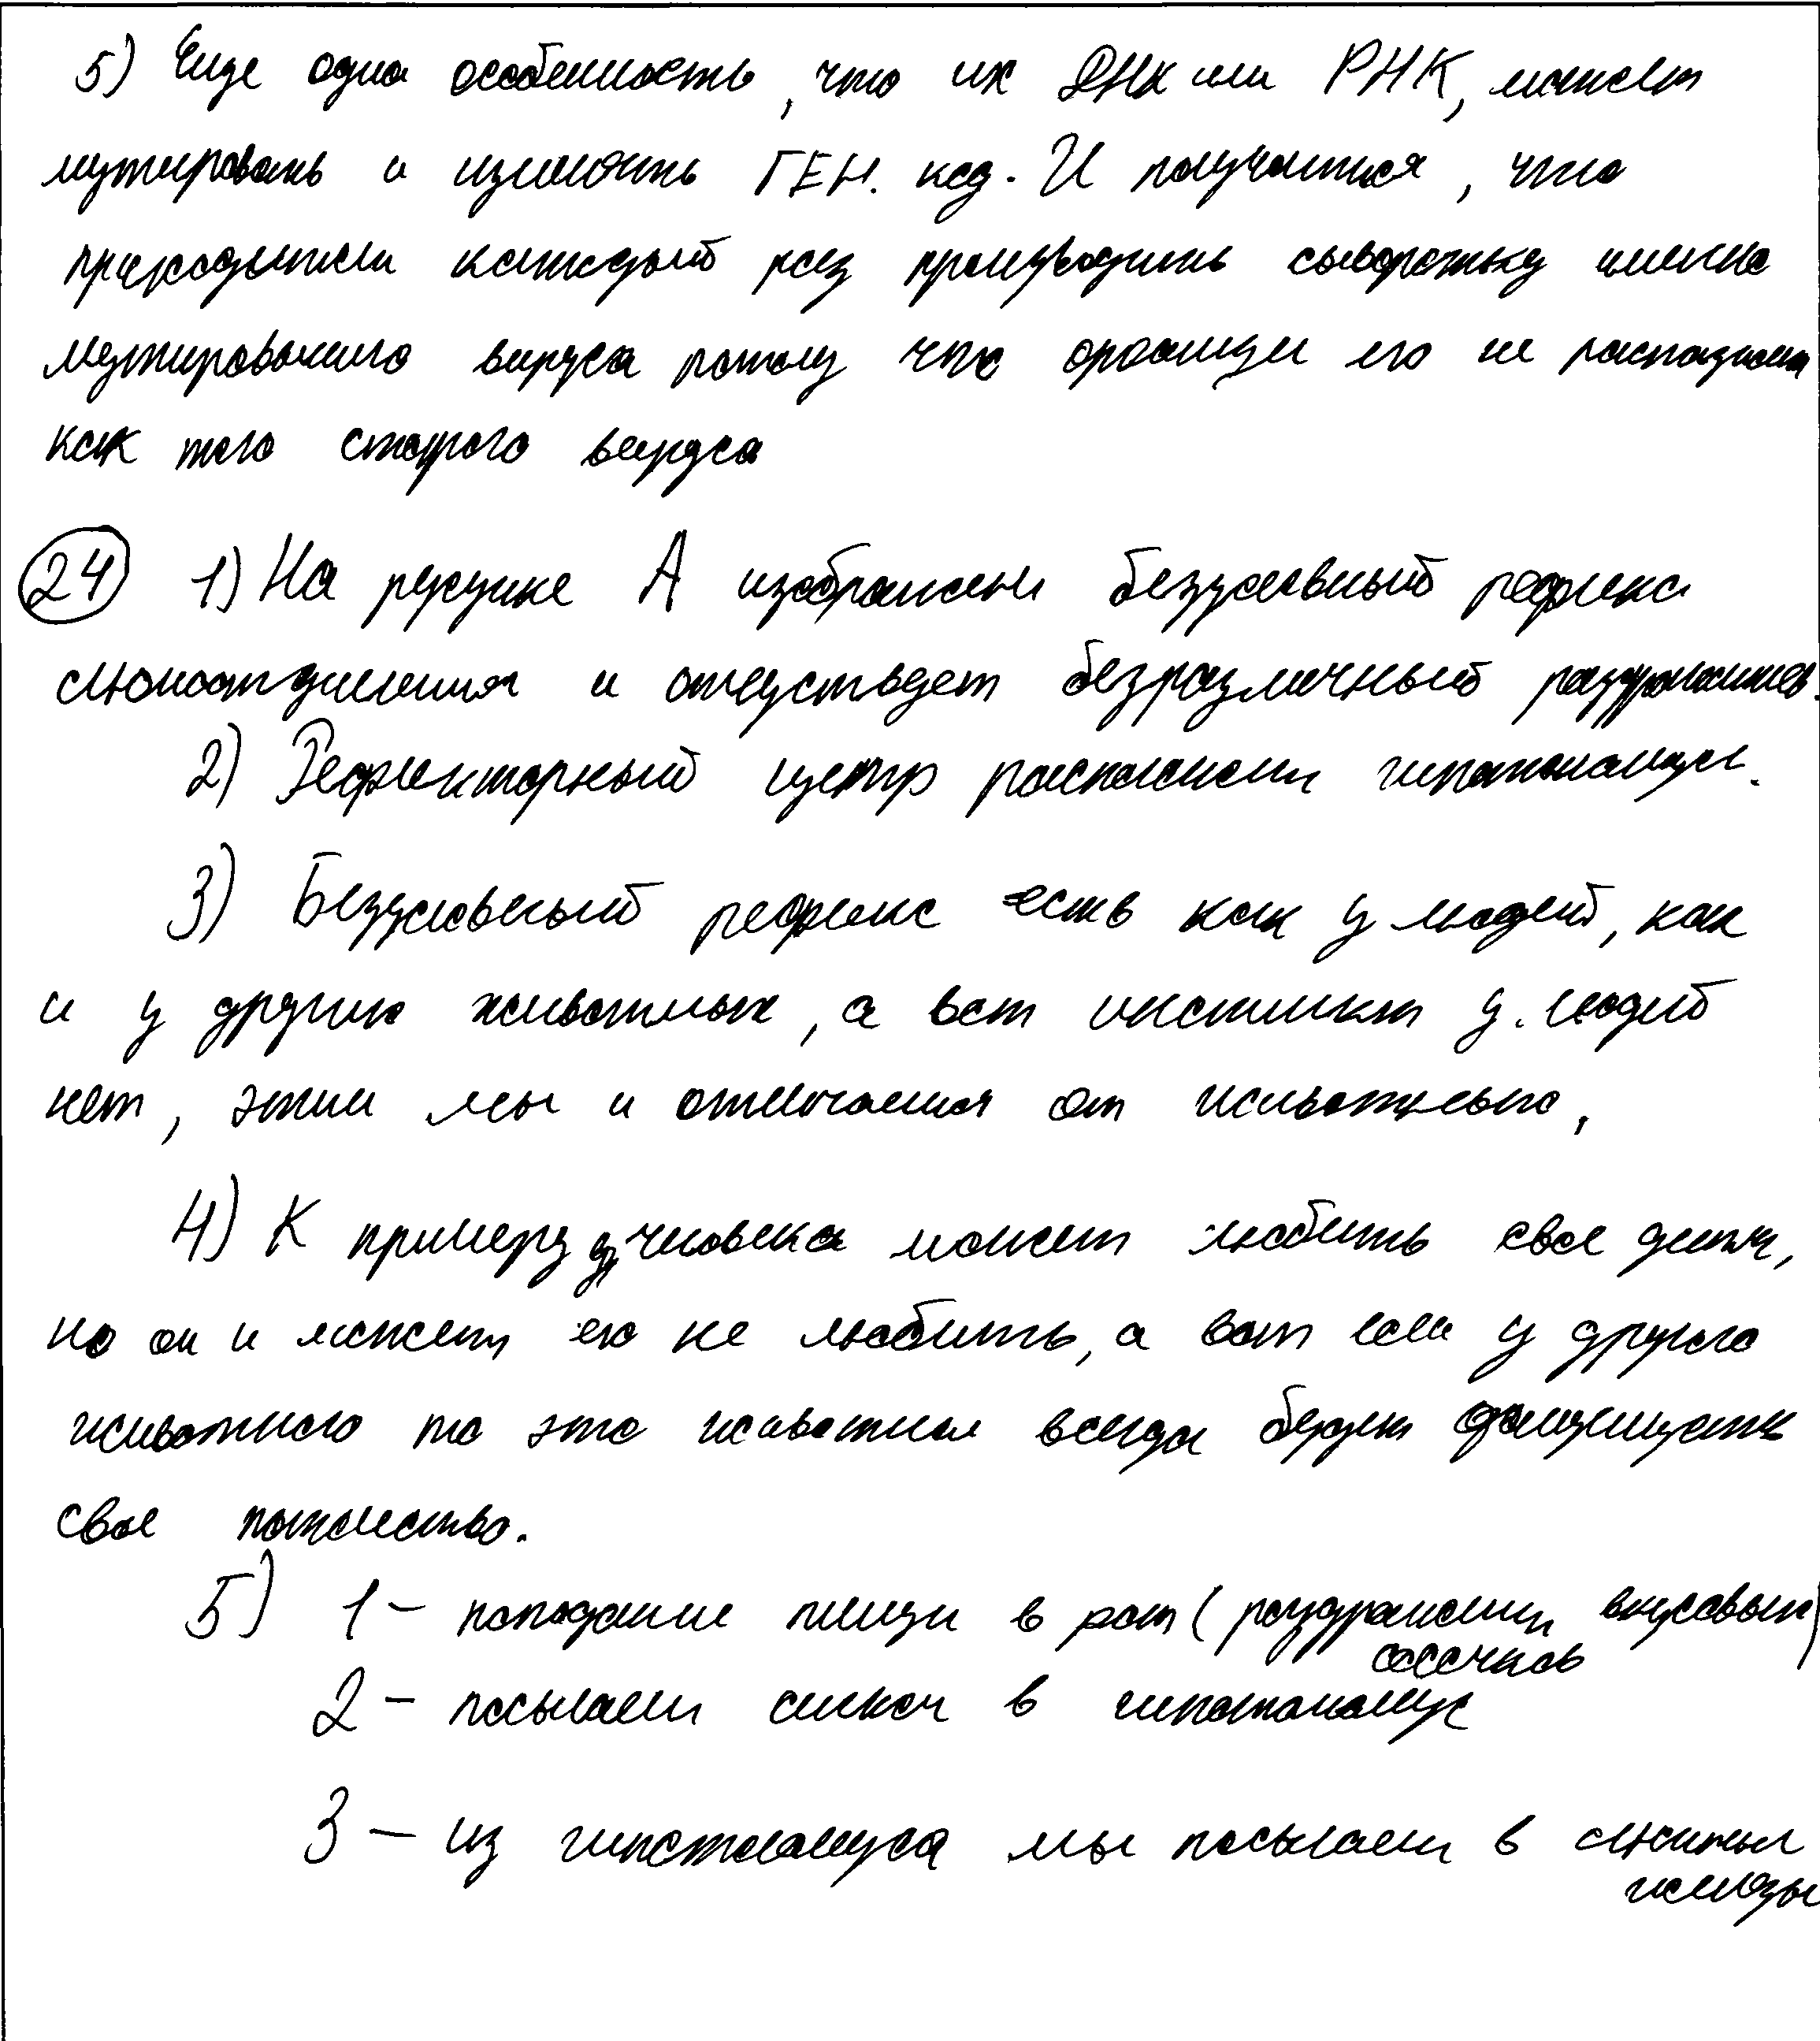 5) Еще одна особенность, что их ДНК или РНК, может
мутировать и изменить ГЕН. код. И получается, что
приходится каждый раз производить сыворотку именно
мутированного вируса потому что организм его не распознает
как того старого вируса
24 1) На рисунке А изображен безусловный рефлекс
слюноотделения и отсутствует безразличный раздражитель.
2) Рефлекторный центр расположен гипоталамус.
3) Безусловный рефлекс есть как у людей, как
и у других животных, а вот инстинкт у людей
нет, этим мы и отличаемся от животных,
4) К примеру у человека может любить свое дитя,
но он и может его не любить, а вот если у другого
животного то это животное всегда будет защищать
свое потомство.
5) 1 - попадание пищи в рот (раздражении вкусовых)
сосочков
2 - посылаем сигнал в гипоталамус
3 - из гипоталамуса мы посылаем в слюнные
железы